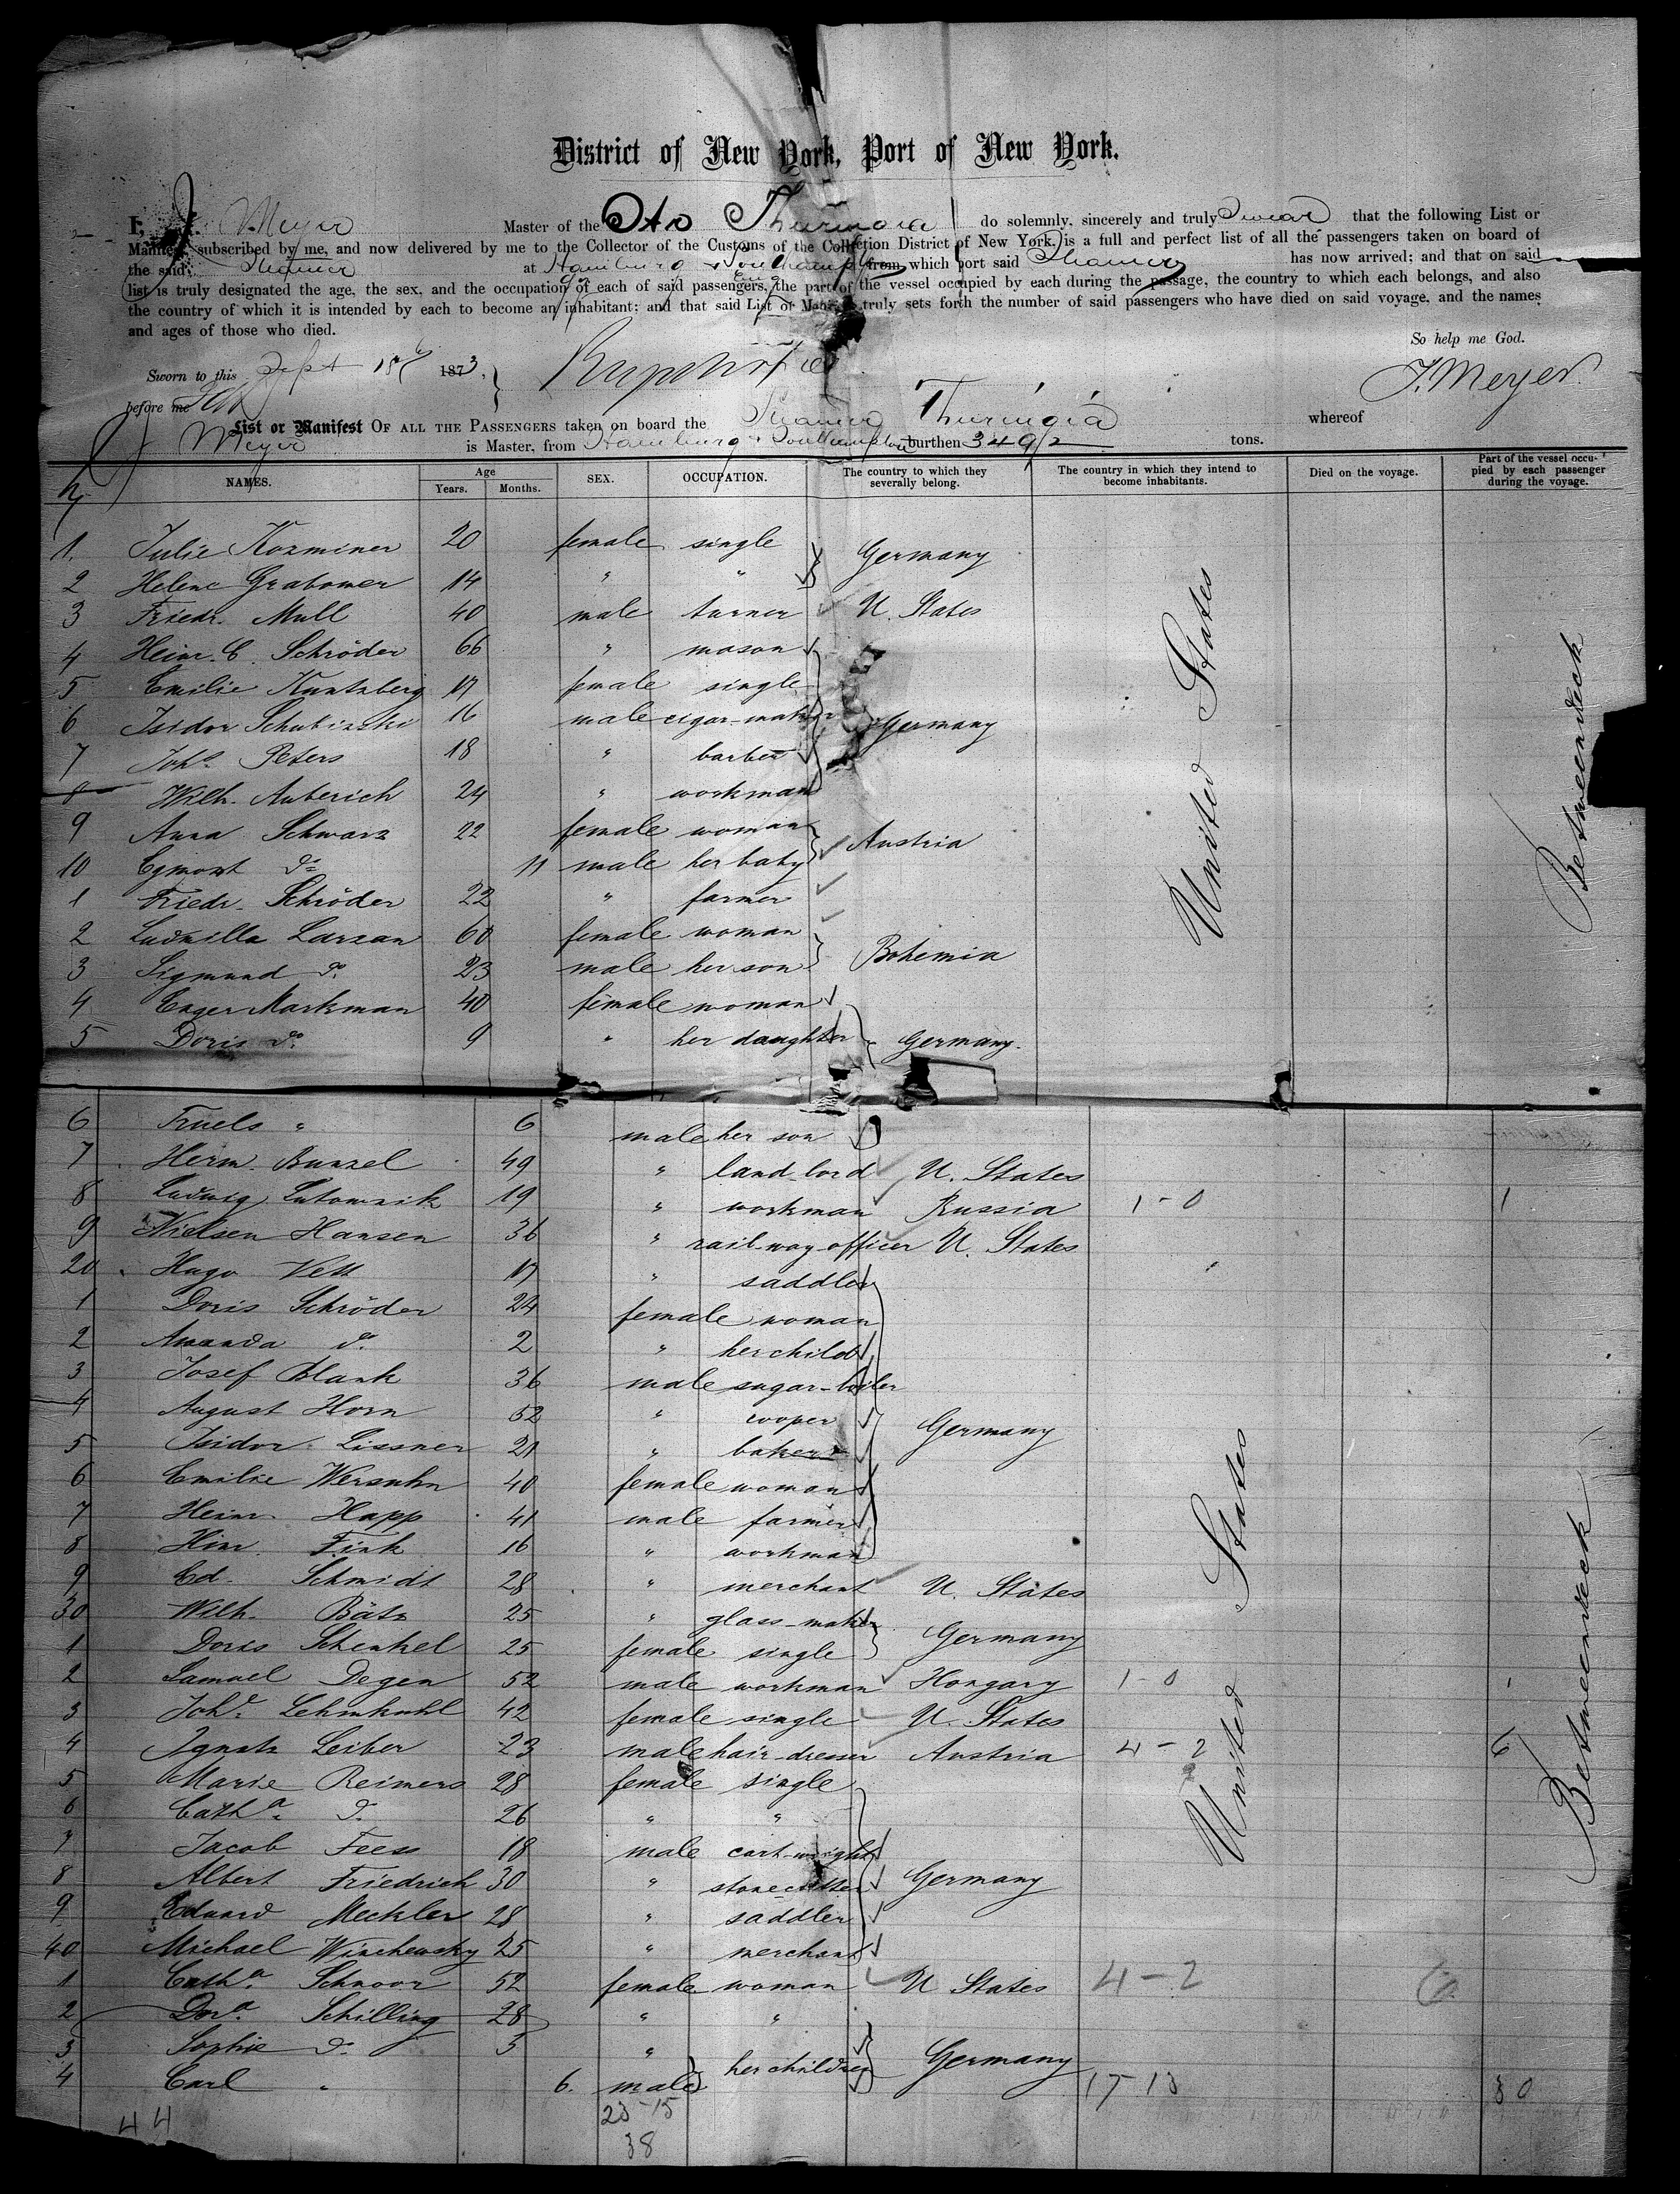 District of New York, Port of New York.
I, J. Meyer Master of the Str Thuringia do solemnly, sincerely and truly Swear that the following List or
Manifest, subscribed by me, and now delivered by me to the Collector of the Customs of the Collection District of New York, is a full and perfect list of all the passengers taken on board of
the said Steamer at Hamburg & Southampton from which port said Steamer has now arrived; and that on said
list is truly designated the age, the sex, and the occupation of each of said passengers, the part of the vessel occupied by each during the passage, the country to which each belongs, and also
the country of which it is intended by each to become an inhabitant; and that said List or Manifest truly sets forth the number of said passengers who have died on said voyage, and the names
and ages of those who died.
So help me God.
Sworn to this Sept 1873,
before me
J. Meyer
List or Manifest OF ALL THE PASSENGERS taken on board the Steamer Thuringia whereof
J Meyer is Master, from Hamburg & Southampton burthen 3492 tons.
NAMES. Age Years. Months. SEX. OCCUPATION. The country to which they severally belong. The country in which they intend to become inhabitants. Died on the voyage. Part of the vessel occupied by each passenger during the voyage.
1. Julie Kozminer 20 female single Germany
2 Helene Grabower 14 " "
3 Friedr. Mull 40 male turner U. States
4 Heinr. C. Schröder 66 " mason
5 Emilie Kantzberg 17 female single
6 Isidor Schubinski 16 male cigar-maker Germany
7 Joh. Peters 18 " barber
8 Wilh. Auberich 24 " workman
9 Anna Schwarz 22 female woman Austria
10 Egmont do 11 male her baby
1 Friedr. Schröder 22 " farmer
2 Ludmilla Larzan 60 female woman
3 Sigmund do. 23 male her son Bohemia
4 Cager Markman 40 female woman
5 Doris do. 9 " her daughter Germany.
United States
Betweendeck
6 Truels " 6 male her son
7 Herm. Bunzel 49 " land-lord U. States
8 Ludwig Lutownik 19 " workman Russia 1-0 1
9 Nielsen Hansen 36 " rail-way-officer U. States
20 Hugo Vett 17 " saddler
1 Doris Schröder 24 female woman
2 Amanda do. 2 " her child
3 Josef Blank 36 male sugar-boiler
4 August Horn 52 " cooper Germany
5 Isidor Lissner 21 " baker
6 Emilie Wersuhn 40 female woman
7 Heinr. Happ 41 male farmer
8 Hinr. Fink 16 " workman
9 Ed. Schmidt 28 " merchant U. States
30 Wilh. Bätz 25 " glass-maker Germany
1 Doris Schenkel 25 female single
2 Samuel Degen 52 male workman Hongary 1-0 1
3 Joh. Lehmkuhl 42 female single U. States
4 Ignatz Leiber 23 male hair-dresser Austria 4-2 6
5 Marie Reimers 28 female single
6 Catha. do. 26 " "
7 Jacob Feess 18 male cart-wright
8 Albert Friedrich 30 " stonecutter Germany
9 Eduard Meckler 28 " saddler
40 Michael Winchewsky 25 " merchant
1 Catha. Schnoor 52 female woman U States 4-2 6
2 Dora. Schilling 28 " "
3 Sophie do. 3 " her children Germany
4 Carl " 6. male 17-13 30
United States
Betweendeck
44 23-15
38